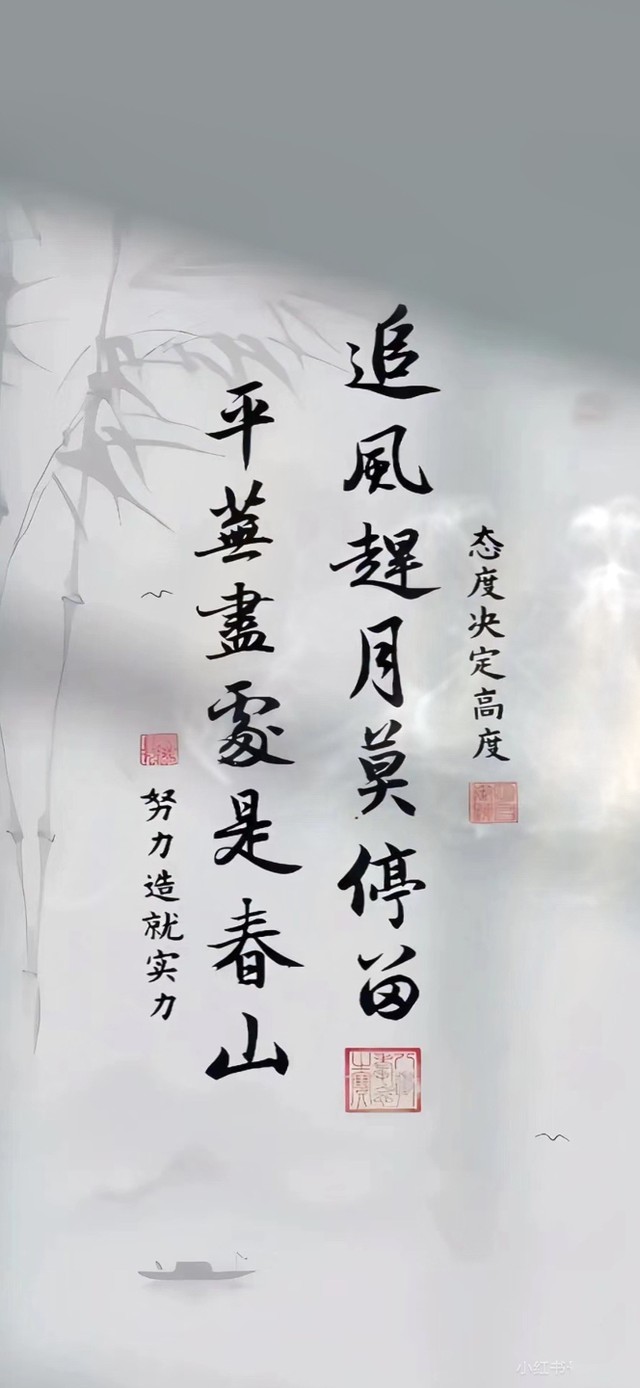 态度决定高度
追風趕月莫停留
平蕪盡處是春山
努力造就实力
小红书